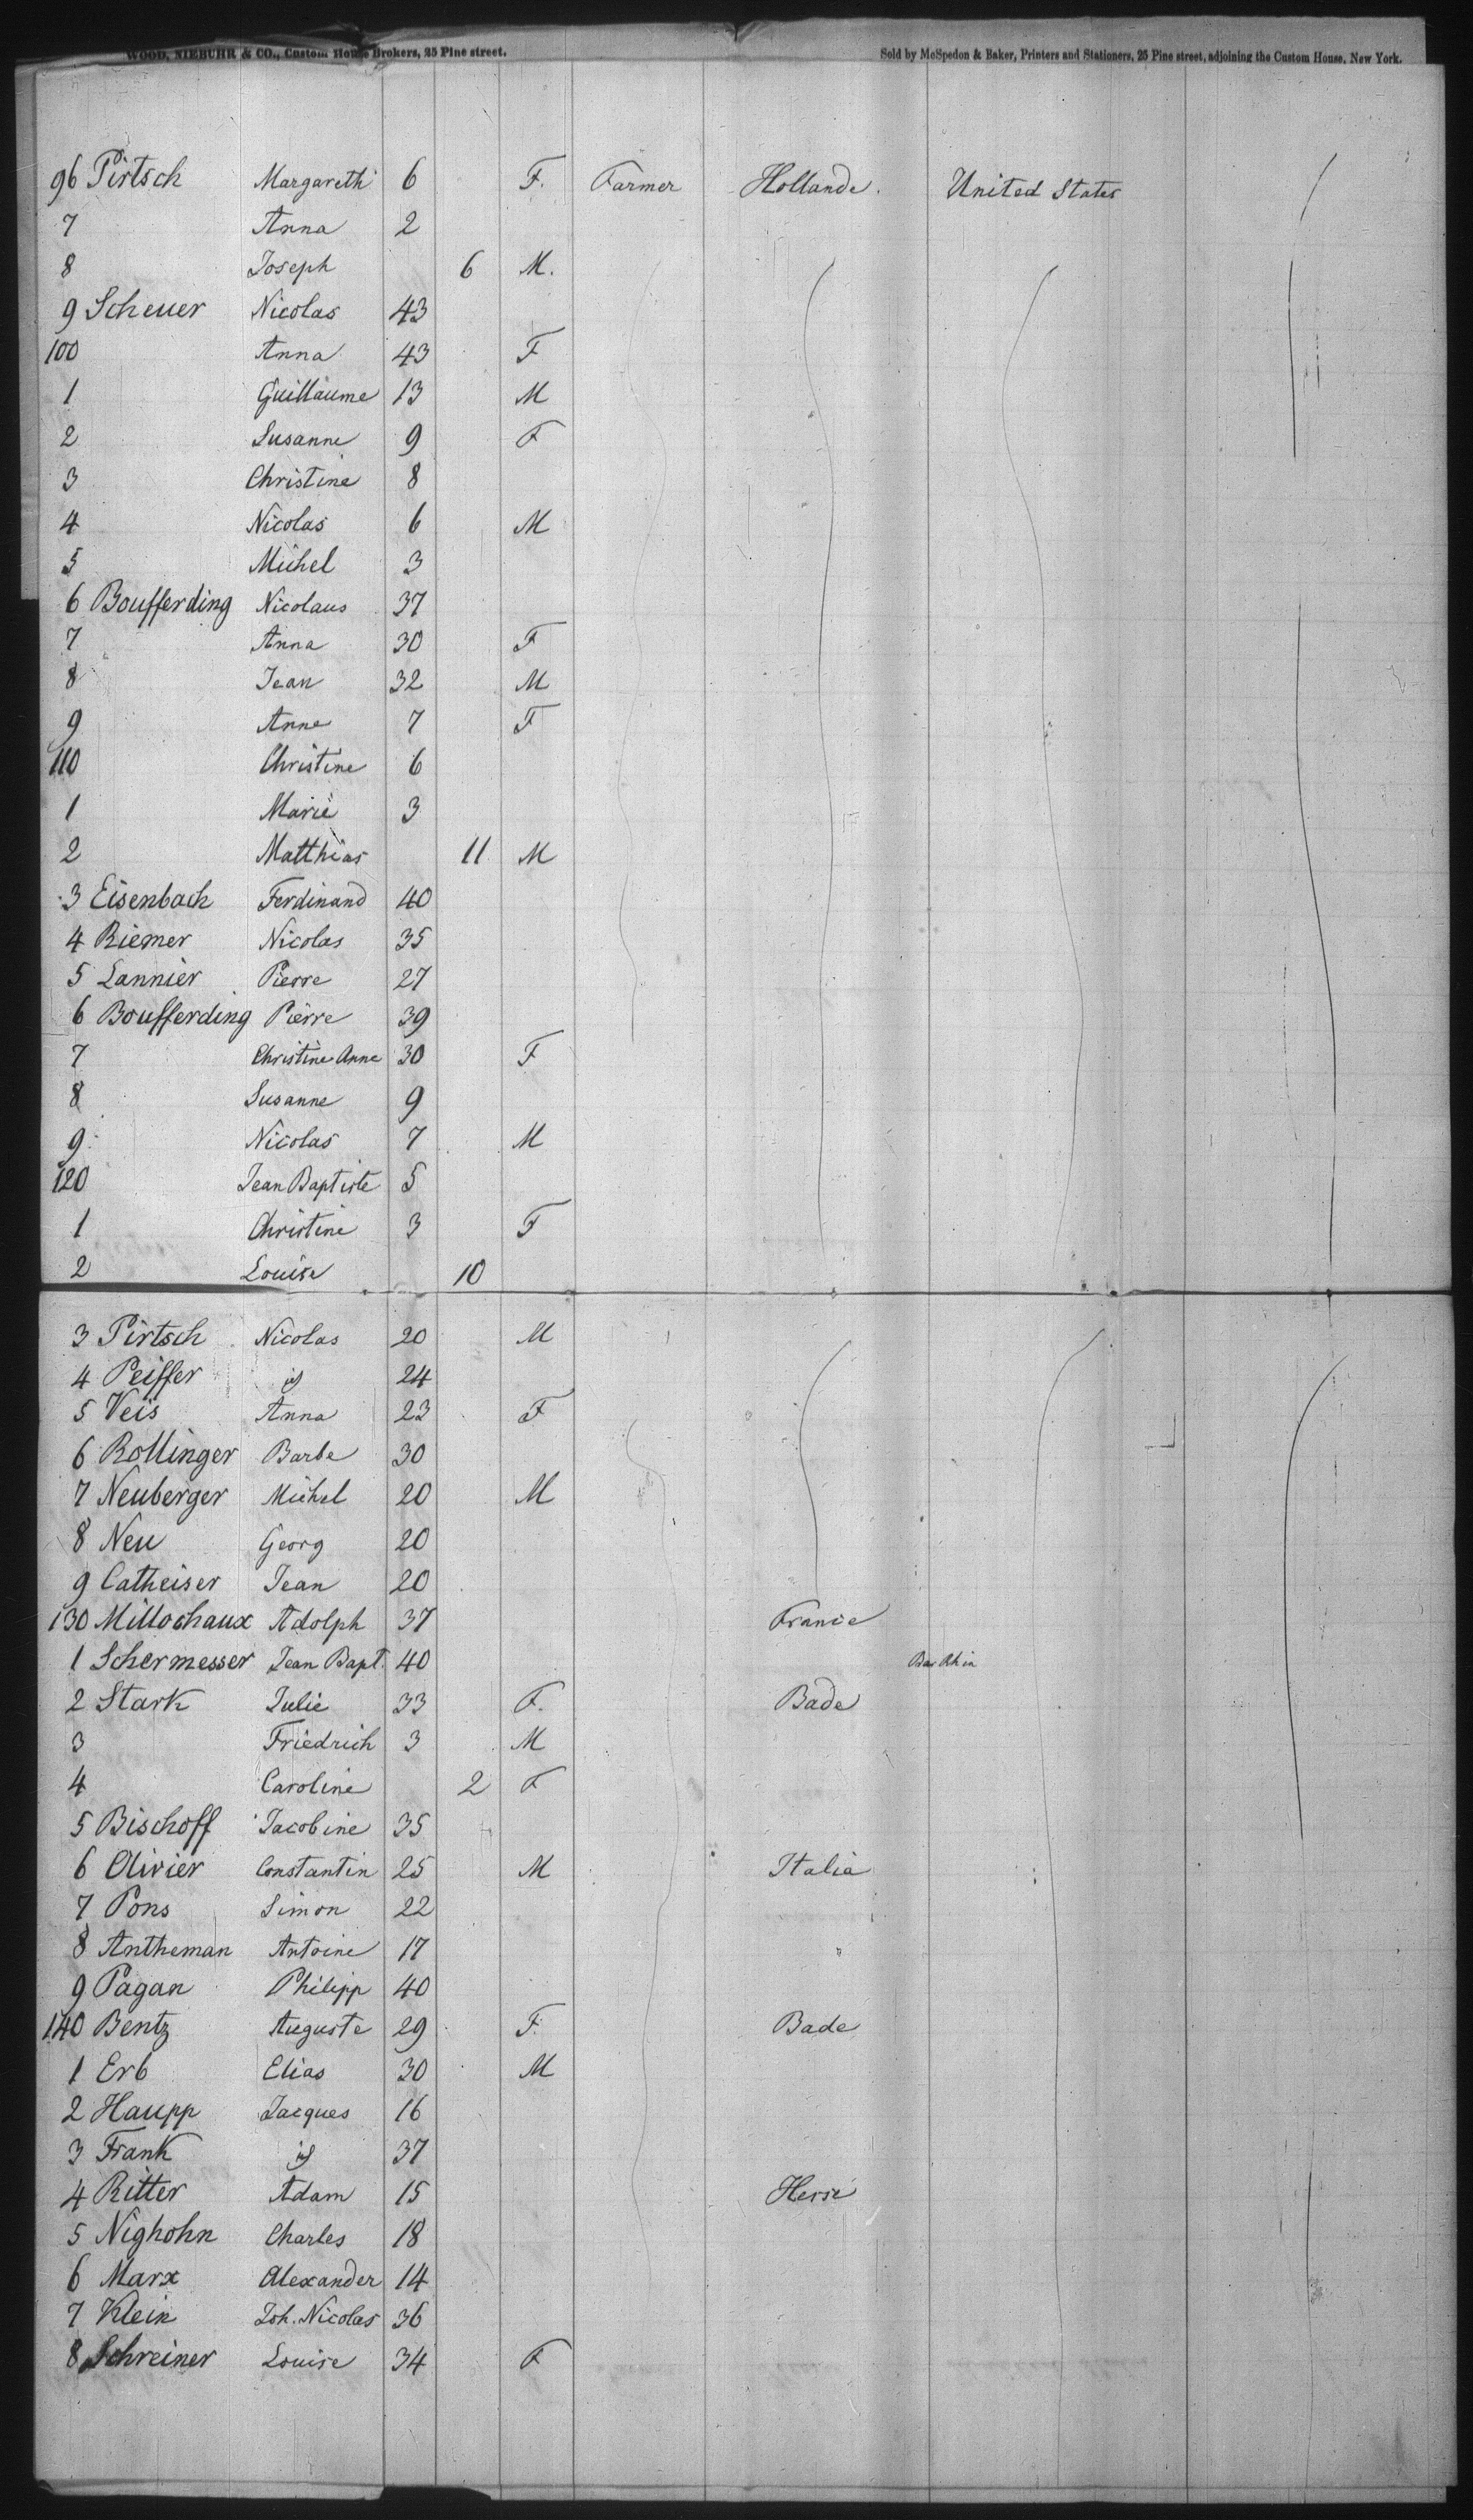 WOOD, NIEBUHR & CO., Custom House Brokers, 25 Pine street. Sold by McSpedon & Baker, Printers and Stationers, 25 Pine street, adjoining the Custom House, New York.
96 Pirtsch Margareth 6 F. Farmer Hollande. United States
7 Anna 2
8 Joseph 6 M.
9 Scheuer Nicolas 43
100 Anna 43 F
1 Guillaume 13 M
2 Susanne 9 F
3 Christine 8
4 Nicolas 6 M
5 Michel 3
6 Boufferding Nicolaus 37
7 Anna 30 F
8 Jean 32 M
9 Anne 7 F
110 Christine 6
1 Marie 3
2 Matthias 11 M
3 Eisenbach Ferdinand 40
4 Riemer Nicolas 35
5 Lannier Pierre 27
6 Boufferding Pierre 39
7 Christine Anne 30 F
8 Susanne 9
9 Nicolas 7 M
120 Jean Baptiste 5
1 Christine 3 F
2 Louise 10
3 Pirtsch Nicolas 20 M
4 Peiffer id 24
5 Veis Anna 23 F
6 Rollinger Barbe 30
7 Neuberger Michel 20 M
8 Neu Georg 20
9 Catheiser Jean 20
130 Millochaux Adolph 37 France
1 Schermesser Jean Bapt. 40 Bas Rhin
2 Stark Julie 33 F. Bade
3 Friedrich 3 M
4 Caroline 2 F
5 Bischoff Jacobine 35
6 Olivier Constantin 25 M Italia
7 Pons Simon 22
8 Antheman Antoine 17
9 Pagan Philipp 40
140 Bentz Auguste 29 F. Bade
1 Erb Elias 30 M
2 Haupp Jacques 16
3 Frank id 37
4 Ritter Adam 15 Hesse
5 Nighohn Charles 18
6 Marx Alexander 14
7 Klein Joh. Nicolas 36
8 Schreiner Louise 34 F